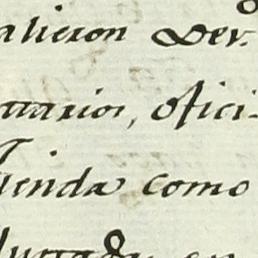 alieron Der-
ttarios, ofici-
ienda como